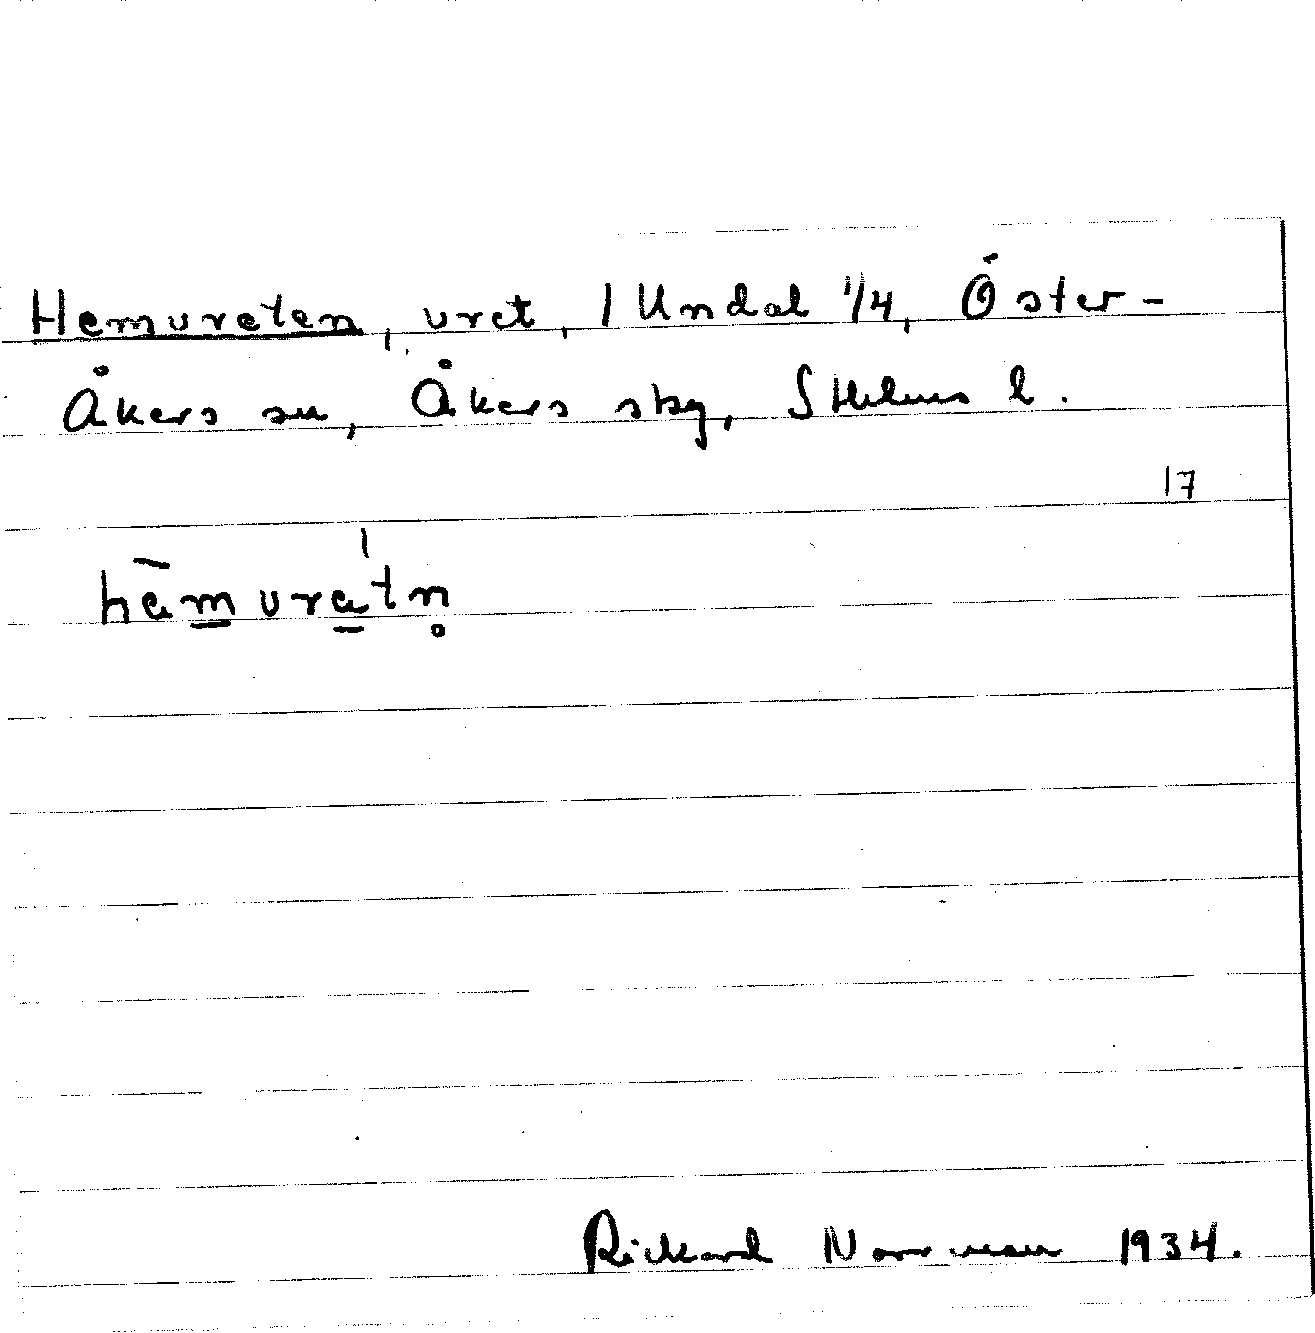 Hemvreten, vret, 1 Undal 1/4, Öster-
Åkers sn, Åkers skg, Sthlms l.
17
hèmvratn̥
Rickard Norrman 1934.